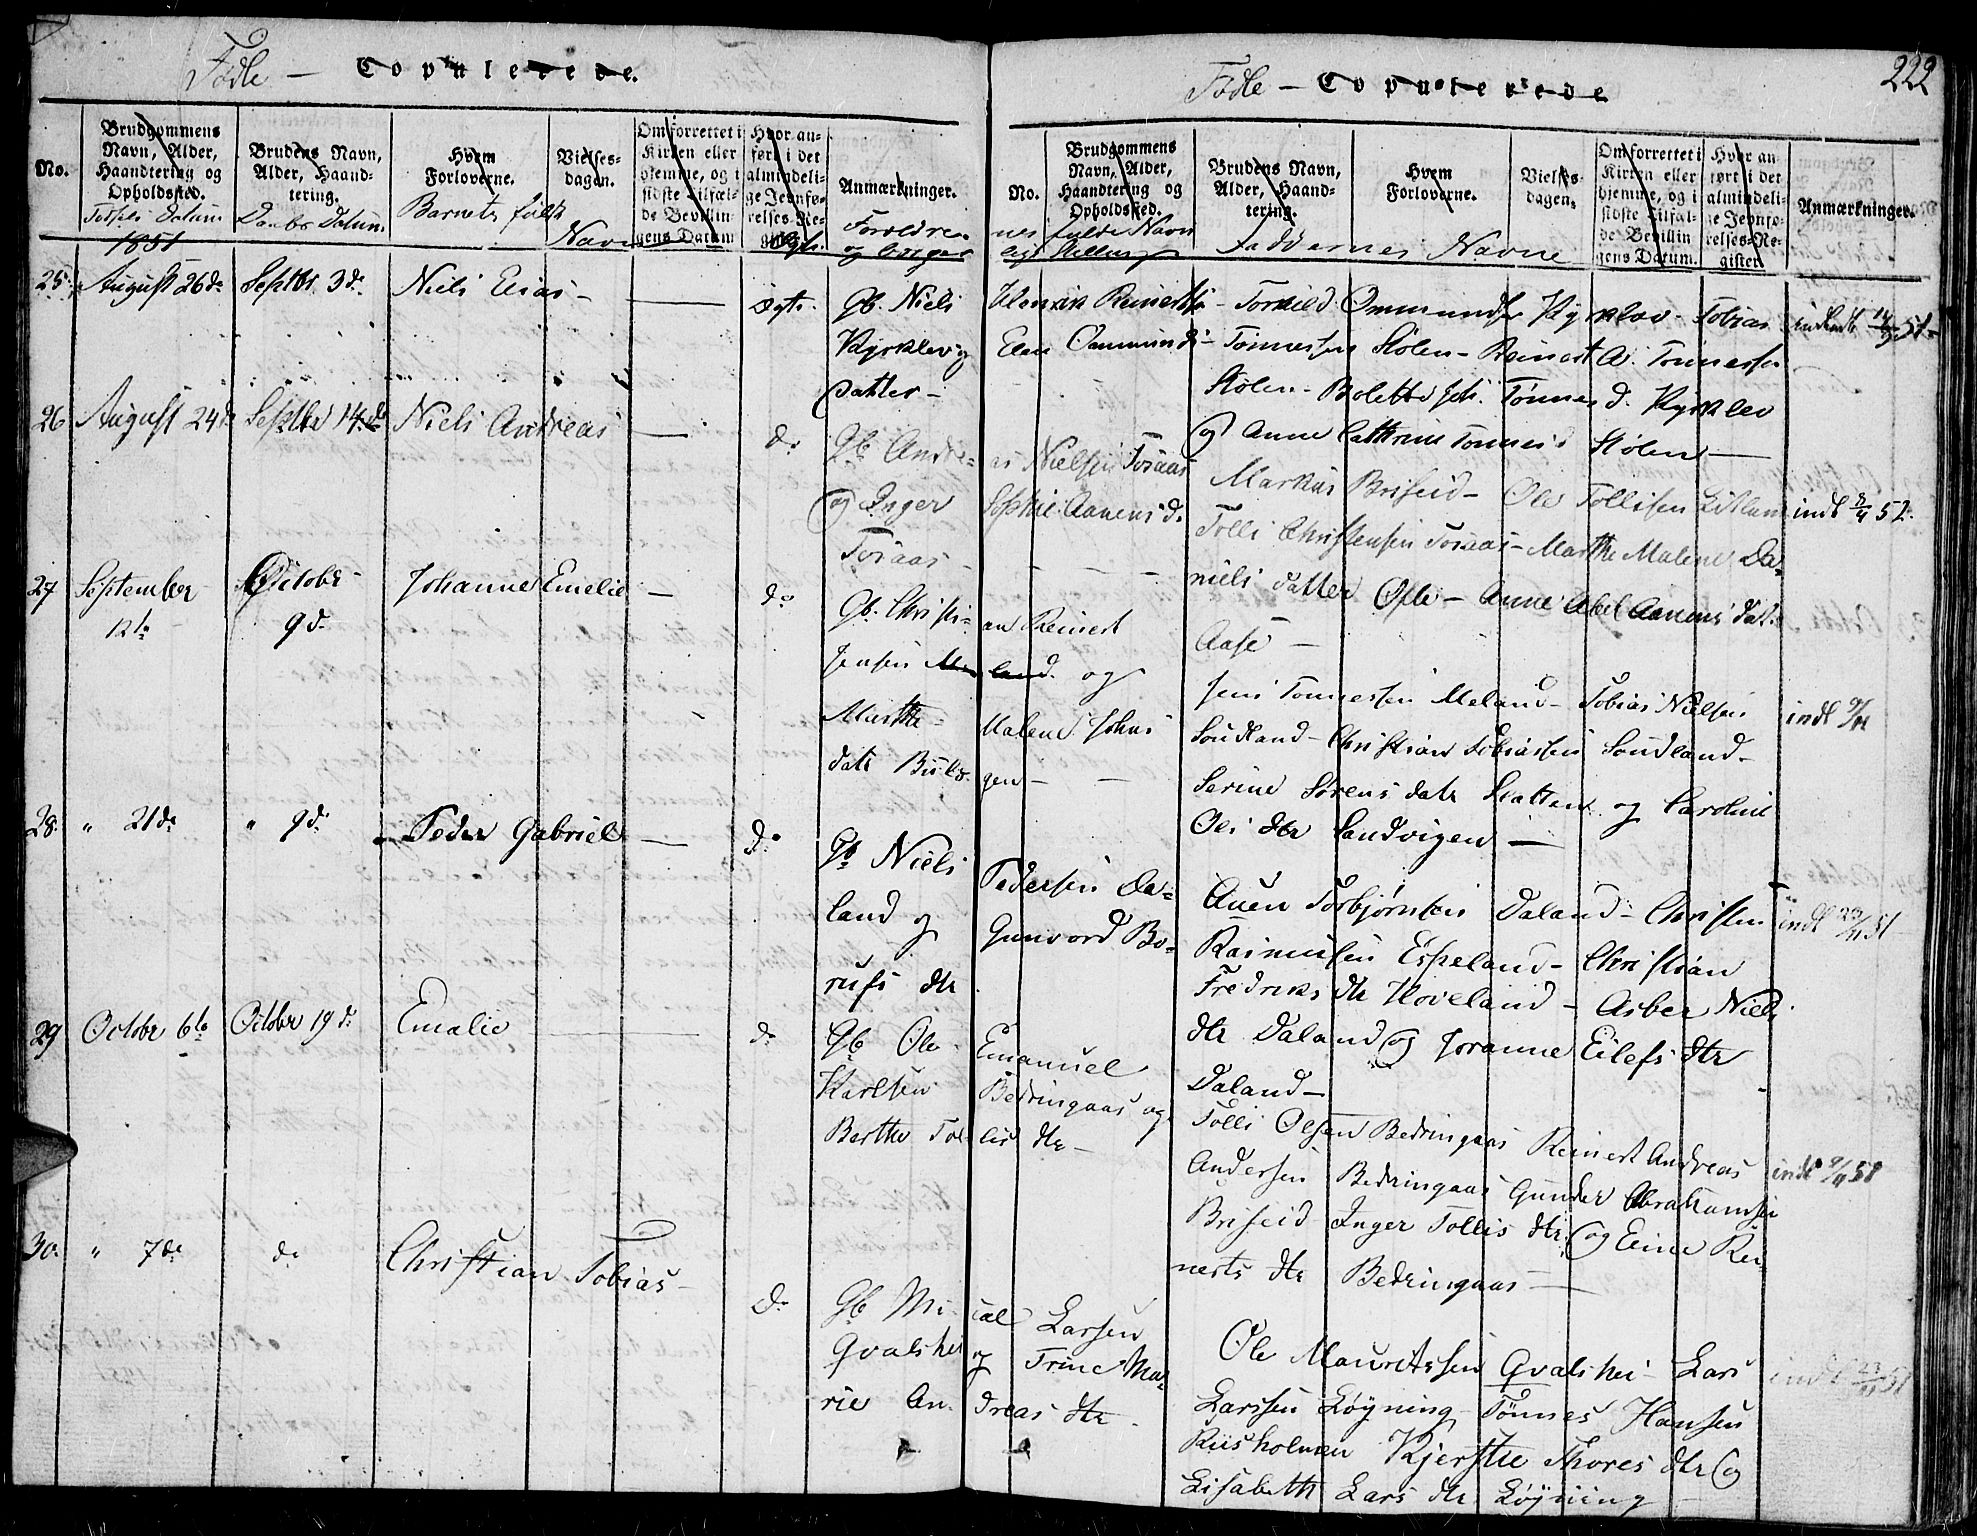 222
Fødte — Copulerede.
Fødte — Copulerede
No.
Brudgommens Navn, Alder, Haandtering og Opholdssted.
Brudens Navn, Alder, Haandtering.
Hvem Forloverne.
Vielsesdagen.
Om forrettet i Kirken eller hjemme, og i sidste Tilfælde Bevillingens Datum
Hvor anført i det almindelige Jevnførelses-Register.
Anmærkninger.
No.
Brudgommens Navn, Alder, Haandtering og Opholdssted.
Brudens Navn, Alder, Haandtering.
Hvem Forloverne.
Vielsesdagen.
Om forrettet i Kirken eller hjemme, og i sidste Tilfælde Bevillingens Datum.
Hvor anført i det almindelige Jevnførelses-Register.
Anmærkninger.
Datum
Daabs Datum
Barnets fulde
Navn
Forældre-
nes fulde Navn
og borger
lige Stilling
Faddernes Navne
1851
25. August 26de Septbr. 3de Niels Elias — Ægte
Gb. Niels Henrik Reinertsen
Kyrklev og Elen Ommunds-
datter —
Torkild Ommundsen Kyrklev - Tobias
Tønnessen Stølen - Reinert A. Tønnessen
Stølen - Bolette Tønnes d. Kyrklev
og Anne Cathrine Tønnes d Stølen —
26 August 24de Septbr 14de Niels Andreas — do
Gb. Andreas Nielsen Tosaas
og Inger Sophie Aanens d.
Tosaas —
Markus Briseid - Ole Tollisen
Tolli Christensen Tosaas - Marthe Malene Da-
niels datter Øfte - Anne Abel Aanens dat.
Aase —
indt 52.
27 September 12te October 9de Johanne Emelie — do
Gb. Christian Reinert
Jensen Meland og
Marthe Malene Johns
datr Birke gen —
Jens Tønnessen Meland - Tobias Nielsen
Soudland - Christian Tobiassen Soudland -
Serine Sørens datr og Caroline
Ols dtr Sandvigen —
indt
28. " 21de " 9de Peder Gabriel — do
Gb Niels Pedersen Da-
land og Gunvord Bo-
rufs dtr
Auen Torbjørnsen Daland - Christen
Rasmussen Espeland - Christian
Fredriks dtr Hoveland - Asber Niels
dtr Daland og Joranne Eilefs dtr
Daland —
indt 23/11 51
29 Octobr 6te Octobr 19de Emalie — do
Gb Ole Emanuel
Karlsen Bedringaas og
Berthe Tollis dtr —
Tolli Olsen Bedringaas Reinert Andreas
Andersen Bedringaas Gunder Abrahamsen
Briseid Inger Tollis dtr. og Eline Rei-
nerts dtr Bedringaas —
indt 9/11 51
30. " 7de do Christian Tobias — do
Gb Mical Larsen
Qvalshei og Trine Ma-
rie Andreas dtr.
Ole Mauritssen Qvalshei - Lars
Larssen Løyning Tønnes Hansen
Riisholmen Kjerstie Thores dtr og
Lisabeth Lars dtr. Løyning —
indt 23/11 51